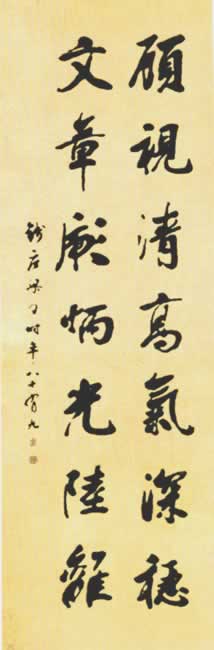 顧視清高氣深穩
文章彪炳光陸離
錢唐梁同書年八十有九